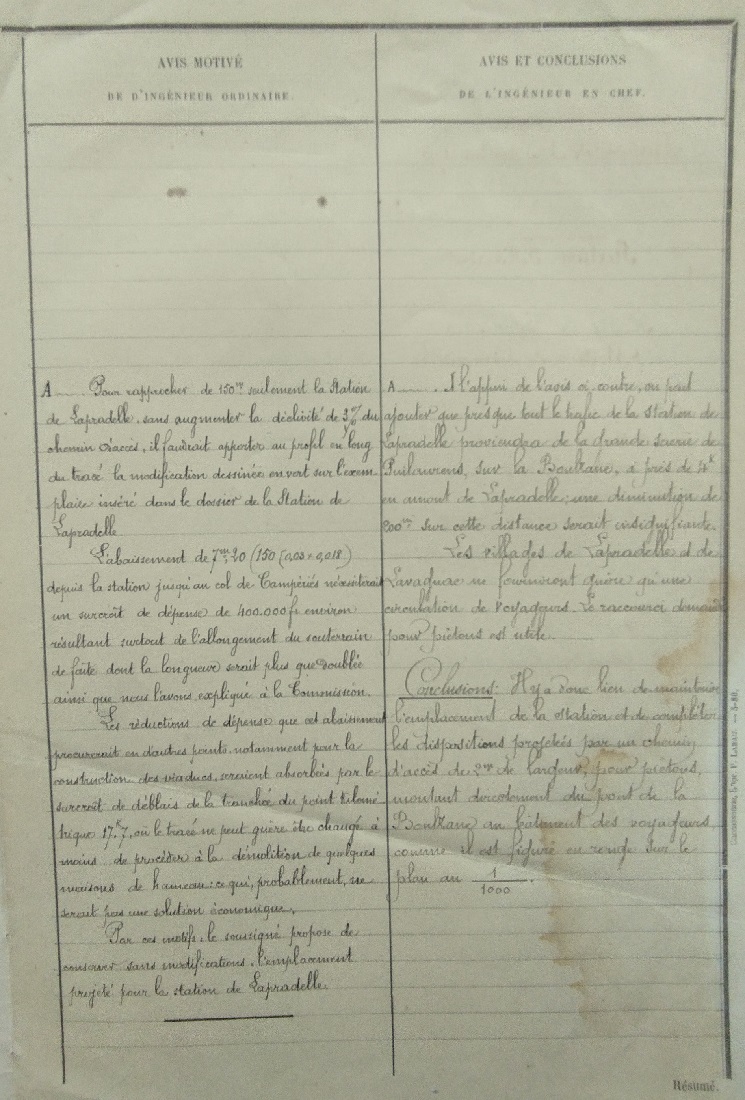 AVIS MOTIVÉ
DE D'INGÉNIEUR ORDINAIRE.
A ..... Pour rapprocher de 150m seulement la Station
de Lapradelle, sans augmenter la déclivité de 3% du
chemin d'accès, il faudrait apporter au profil en long
du tracé la modification dessinée en vert sur l'exem-
plaire inséré dans le dossier de la Station de
Lapradelle
L'abaissement de 7m20 (150 (0,03 + 0,018)
depuis la station jusqu'au col de Campériés nécessiterait
un surcroît de dépense de 400.000f environ
résultant surtout de l'allongement du souterrain
de faîte dont la longueur serait plus que doublée
ainsi que nous l'avons expliqué à la Commission.
Les réductions de dépense que cet abaissement
procurerait en d'autres points, notamment pour la
construction des viaducs, seraient absorbées par le
surcroît de déblais de la tranchée du point kilomé
trique 17k7, où le tracé ne peut guère être changé à
moins de procéder à la démolition de quelques
maisons de hameau: ce qui, probablement, ne
serait pas une solution économique.
Par ces motifs, le soussigné propose de
conserver sans modifications, l'emplacement
projeté pour la station de Lapradelle.
AVIS ET CONCLUSIONS
DE L'INGÉNIEUR EN CHEF.
A ....... A l'appui de l'avis ci-contre, on peut
ajouter que presque tout le trafic de la station de
Lapradelle proviendra de la grande scierie de
Puilaurens, sur la Boulzane, à près de 4k
en amont de Lapradelle; une diminution de
200m sur cette distance serait insignifiante.
Les villages de Lapradelle et de
Lavagnac ne fourniront guère qu'une
circulation de voyageurs. Le raccourci demandé
pour piétons est utile.
Conclusions: Il y a donc lieu de maintenir
l'emplacement de la station et de compléter
les dispositions projetées par un chemin
d'accès de 2m de largeur, pour piétons,
montant directement du pont de la
Boulzane au bâtiment des voyageurs
comme il est figuré en rouge sur le
plan au 1/1000.
Résumé.